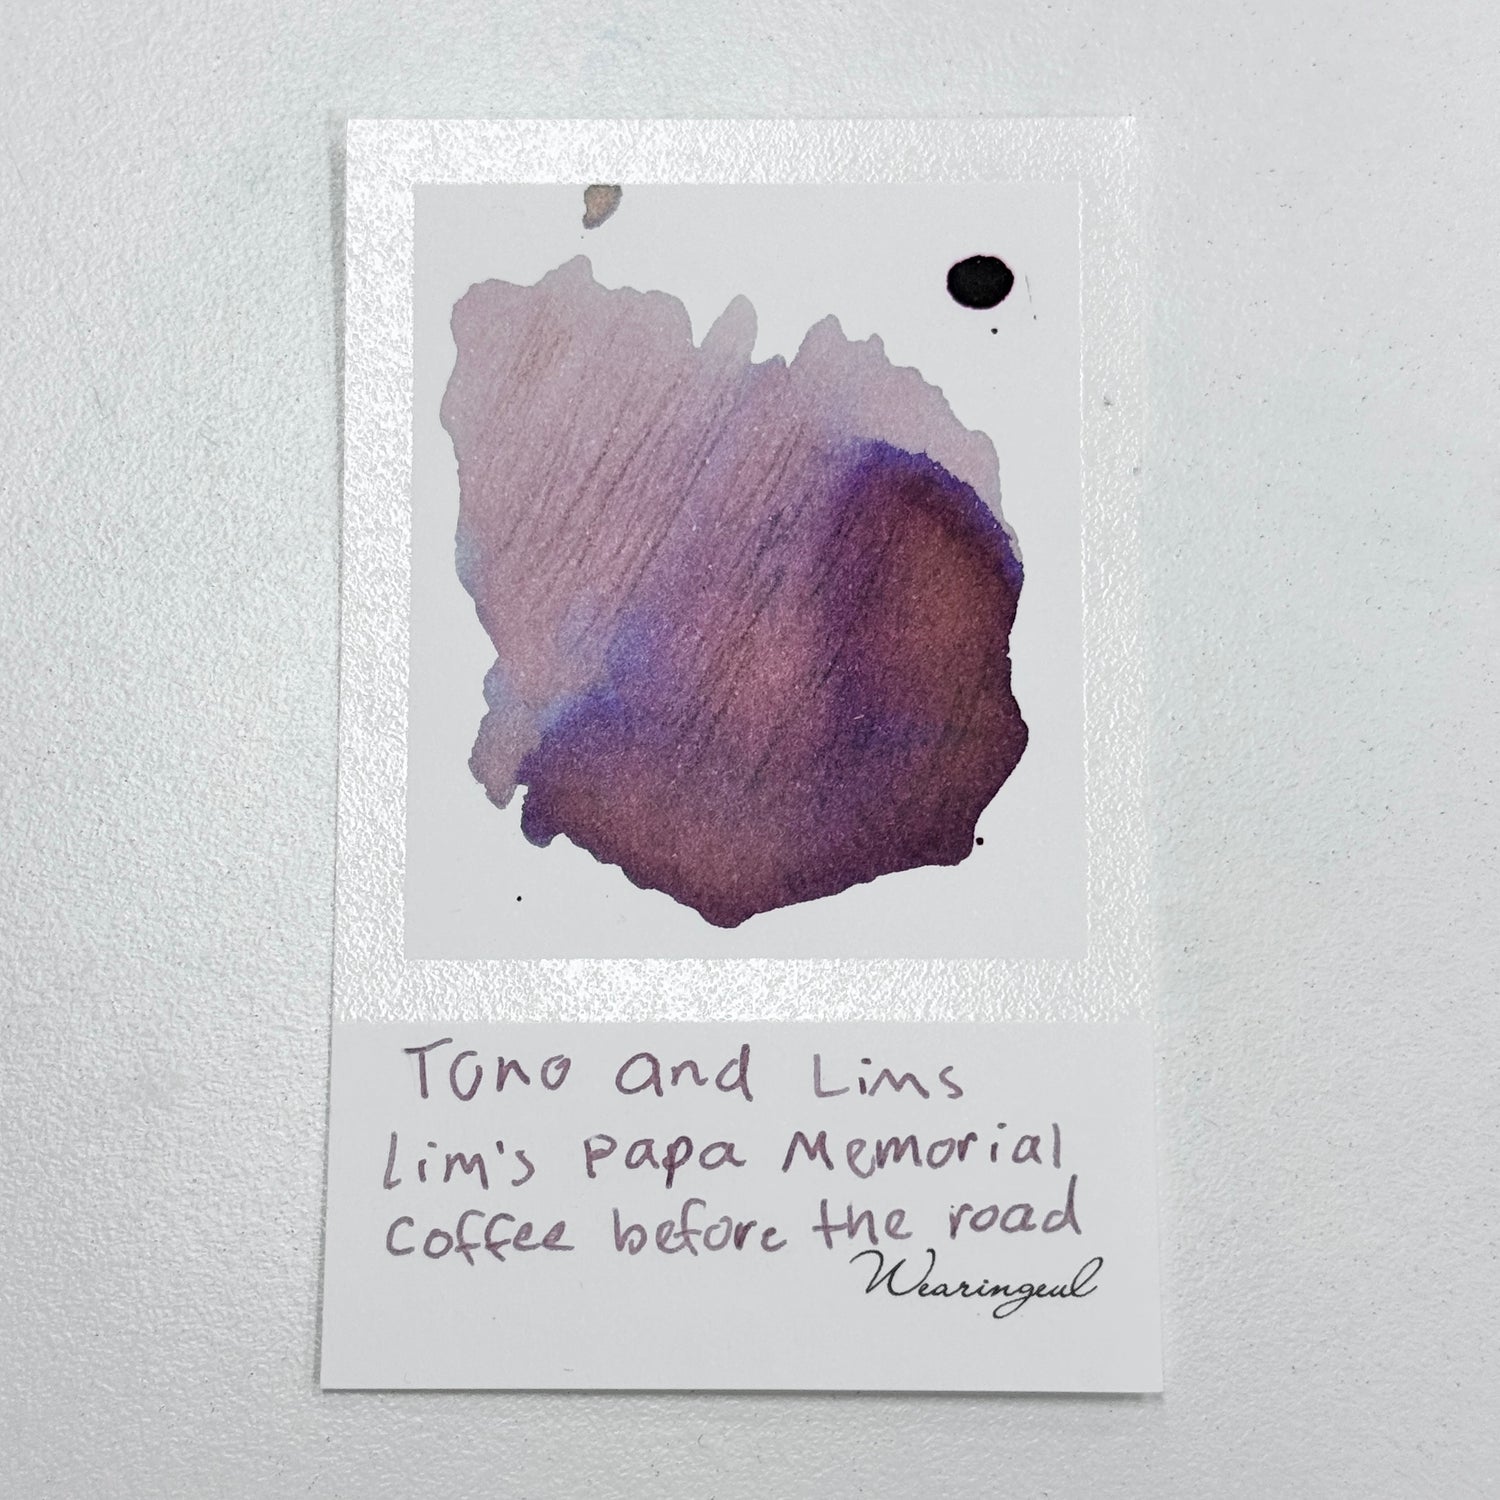 Tono and Lims
Lim's Papa Memorial
Coffee before the road
Wearingeul